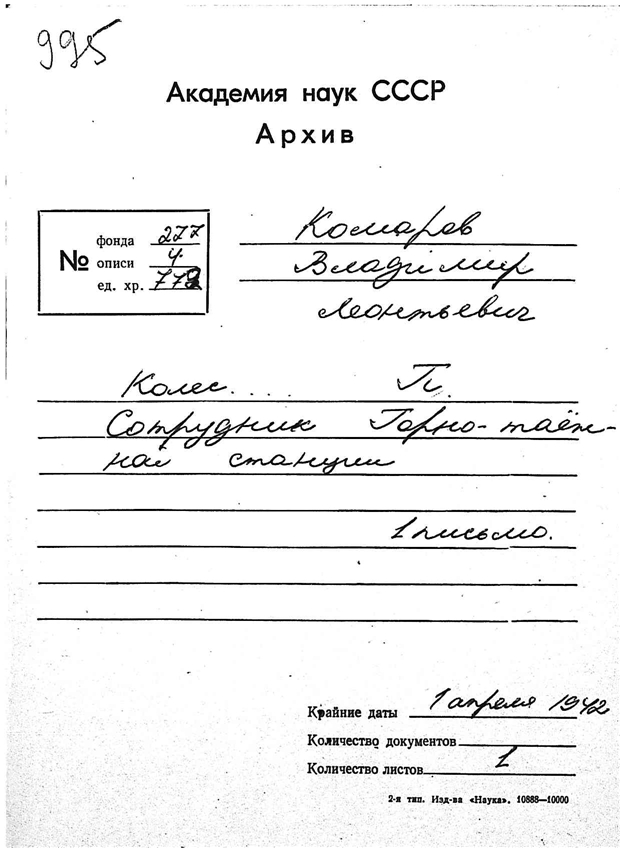 995
Академия наук СССР
Архив
№
фонда 277
описи 4.
ед. хр.
Комаров
Владимир
Леонтьевич
Колес.... П.
Сотрудник Горно-таёж-
ной станции
1 письмо.
Крайние даты 1 апреля 1942
Количество документов
Количество листов 1
2-я тип. Изд-ва «Наука». 10888—10000